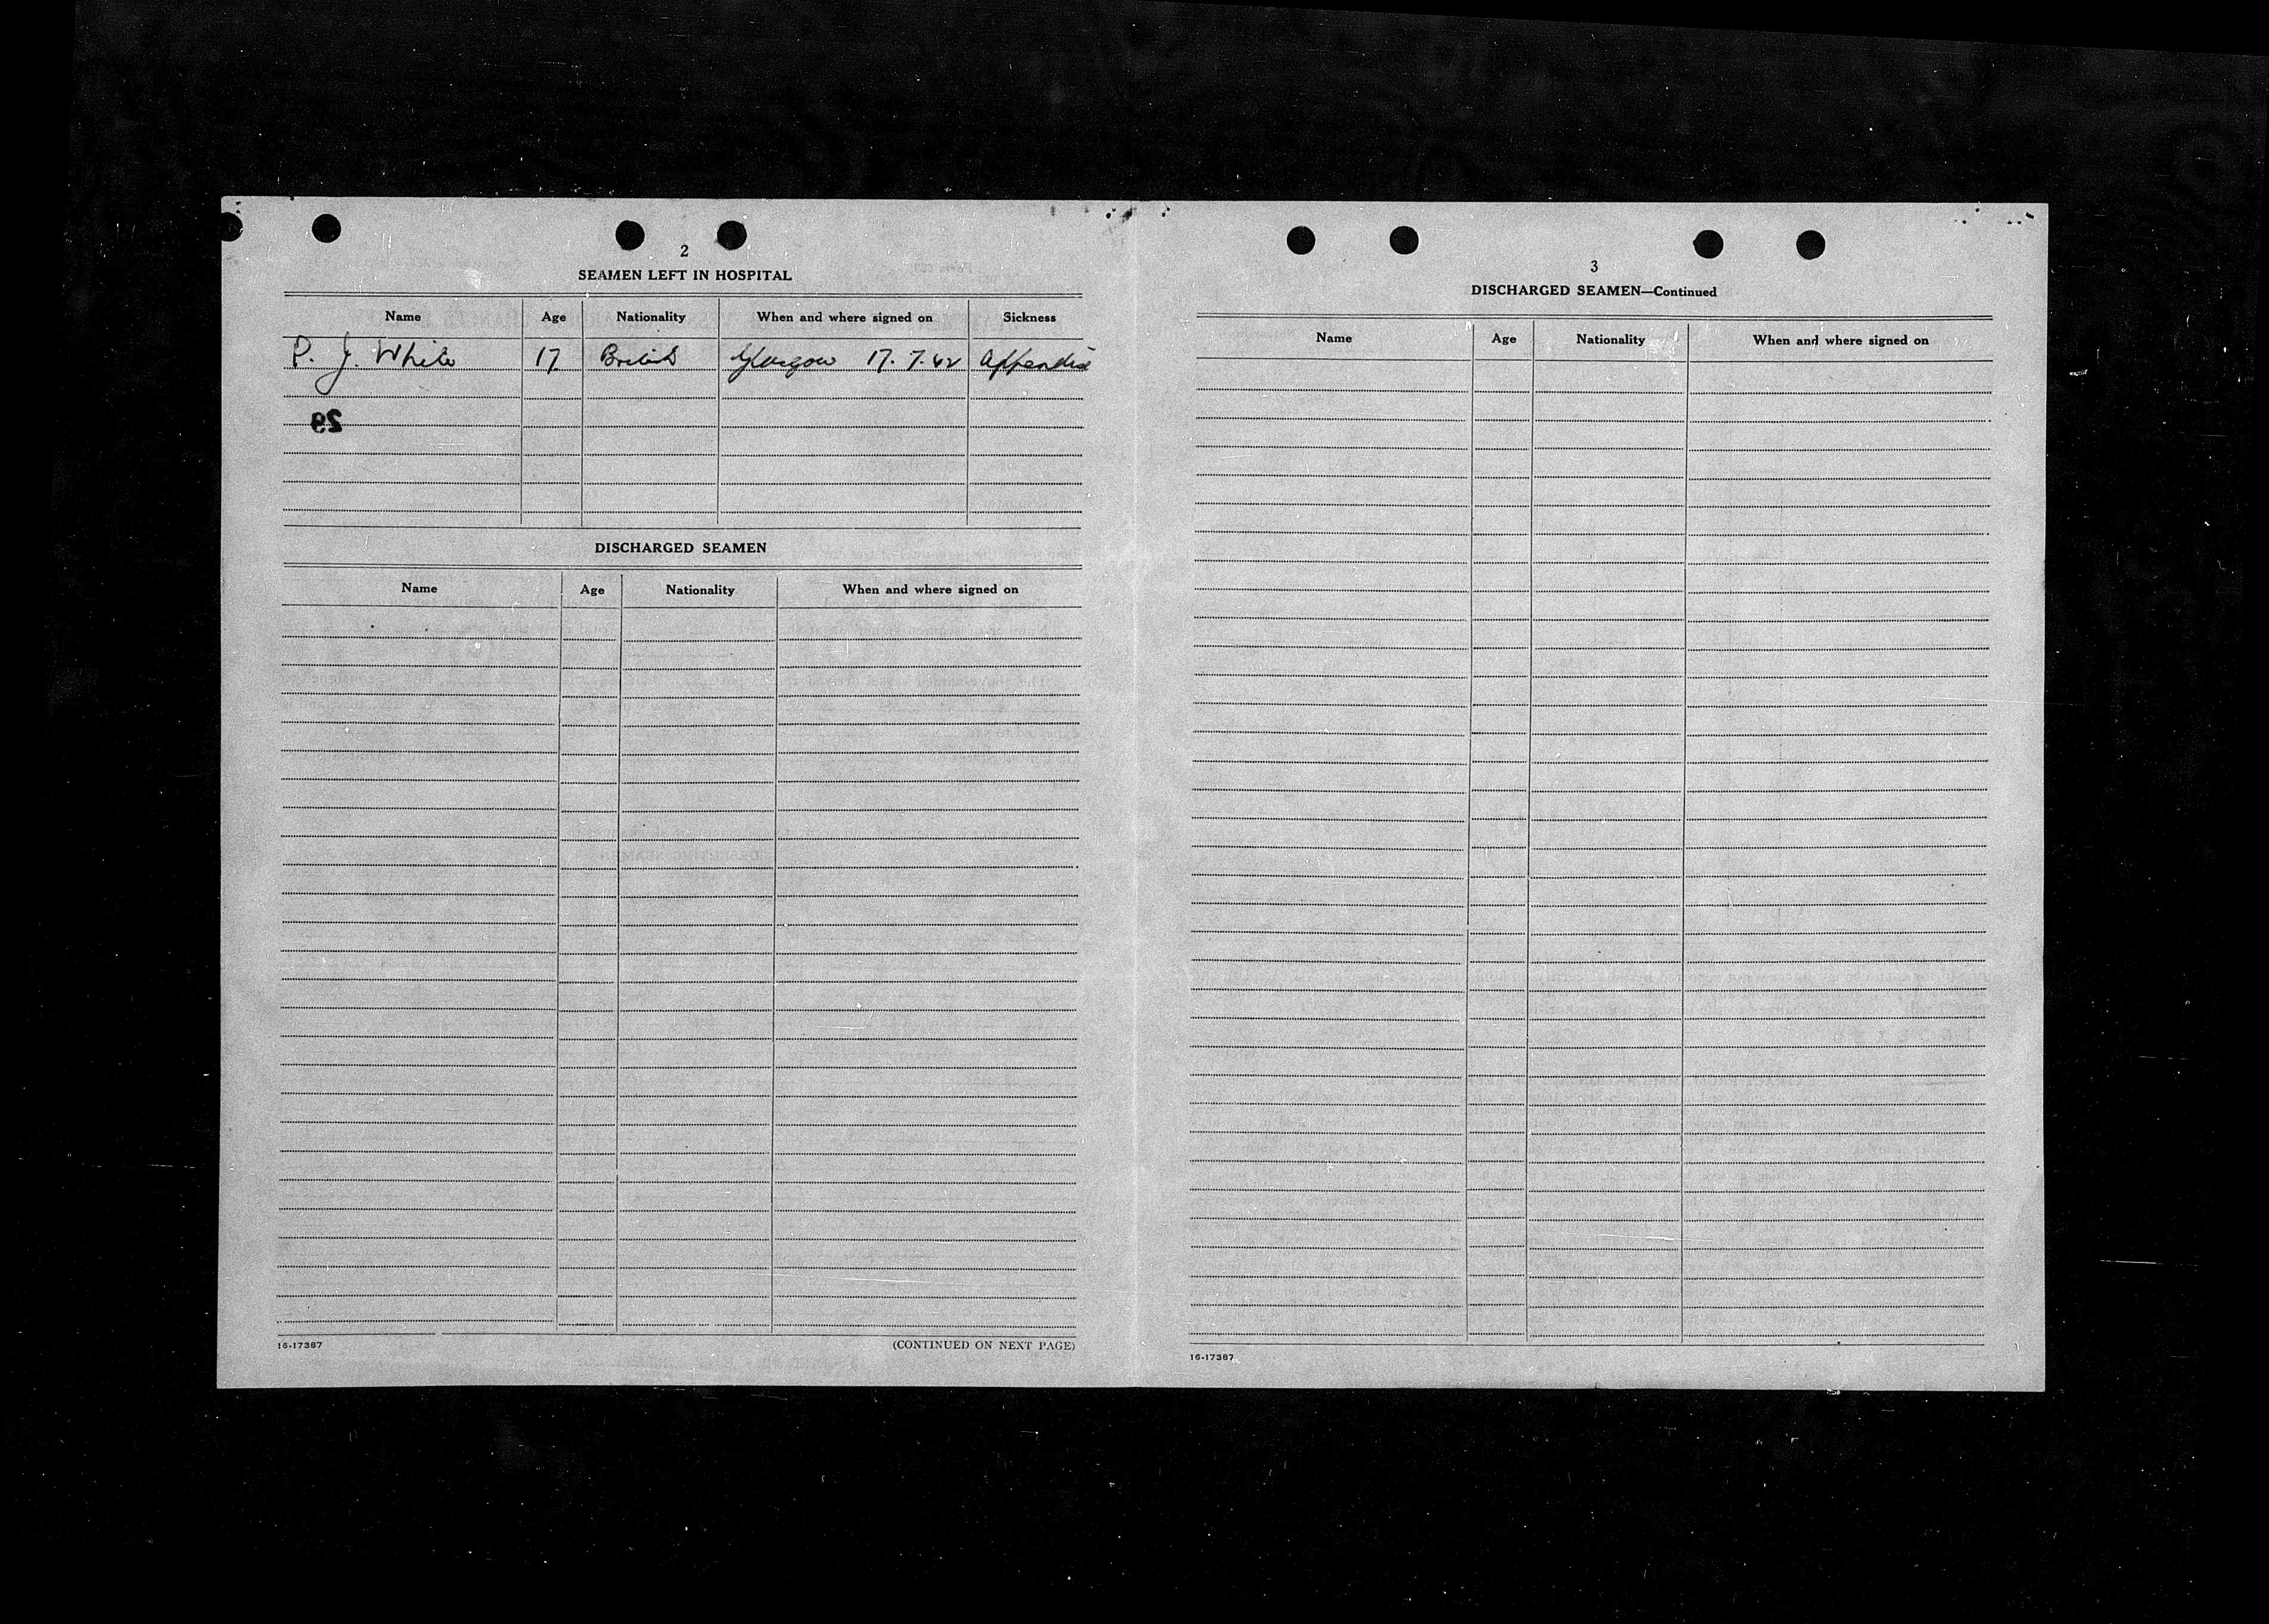 2
SEAMEN LEFT IN HOSPITAL
Name Age Nationality When and where signed on Sickness
P. J. White 17 British Glasgow 17.7.42 Appendix
29
DISCHARGED SEAMEN
Name Age Nationality When and where signed on
16-17387 (CONTINUED ON NEXT PAGE)
3
DISCHARGED SEAMEN—Continued
Name Age Nationality When and where signed on
16-17387